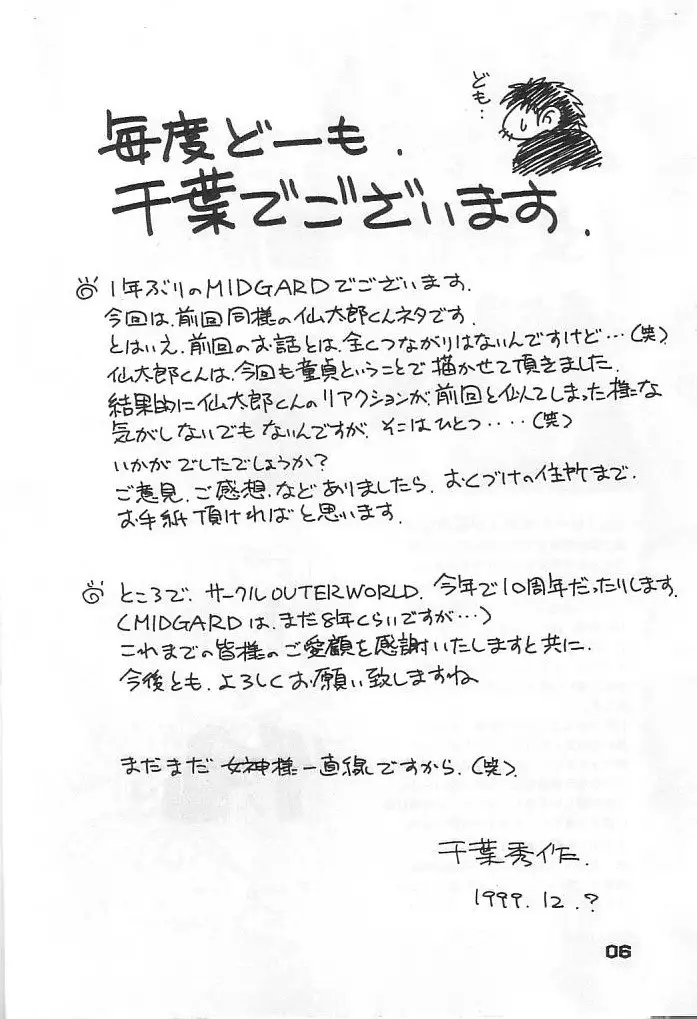 ども‥
毎度どーも.
千葉でございます.
1年ぶりのMIDGARDでございます.
今回は、前回同様の仙太郎くんネタです.
とはいえ、前回のお話とは、全くつながりはないんですけど…(笑)
仙太郎くんは、今回も童貞ということで描かせて頂きました.
結果的に仙太郎くんのリアクションが、前回と似てしまった様な
気がしないでもないんですが、そこはひとつ‥‥(笑)
いかがでしたでしょうか?
ご意見、ご感想、などありましたら、おくづけの住所まで、
お手紙頂ければと思います.
ところで、サークルOUTERWORLD、今年で10周年だったりします.
(MIDGARDは、まだ8年くらいですが…)
これまでの皆様のご愛顧を感謝いたしますと共に、
今後とも、よろしくお願い致しますね
まだまだ女神様一直線ですから、(笑).
千葉秀作.
1999.12.?
06